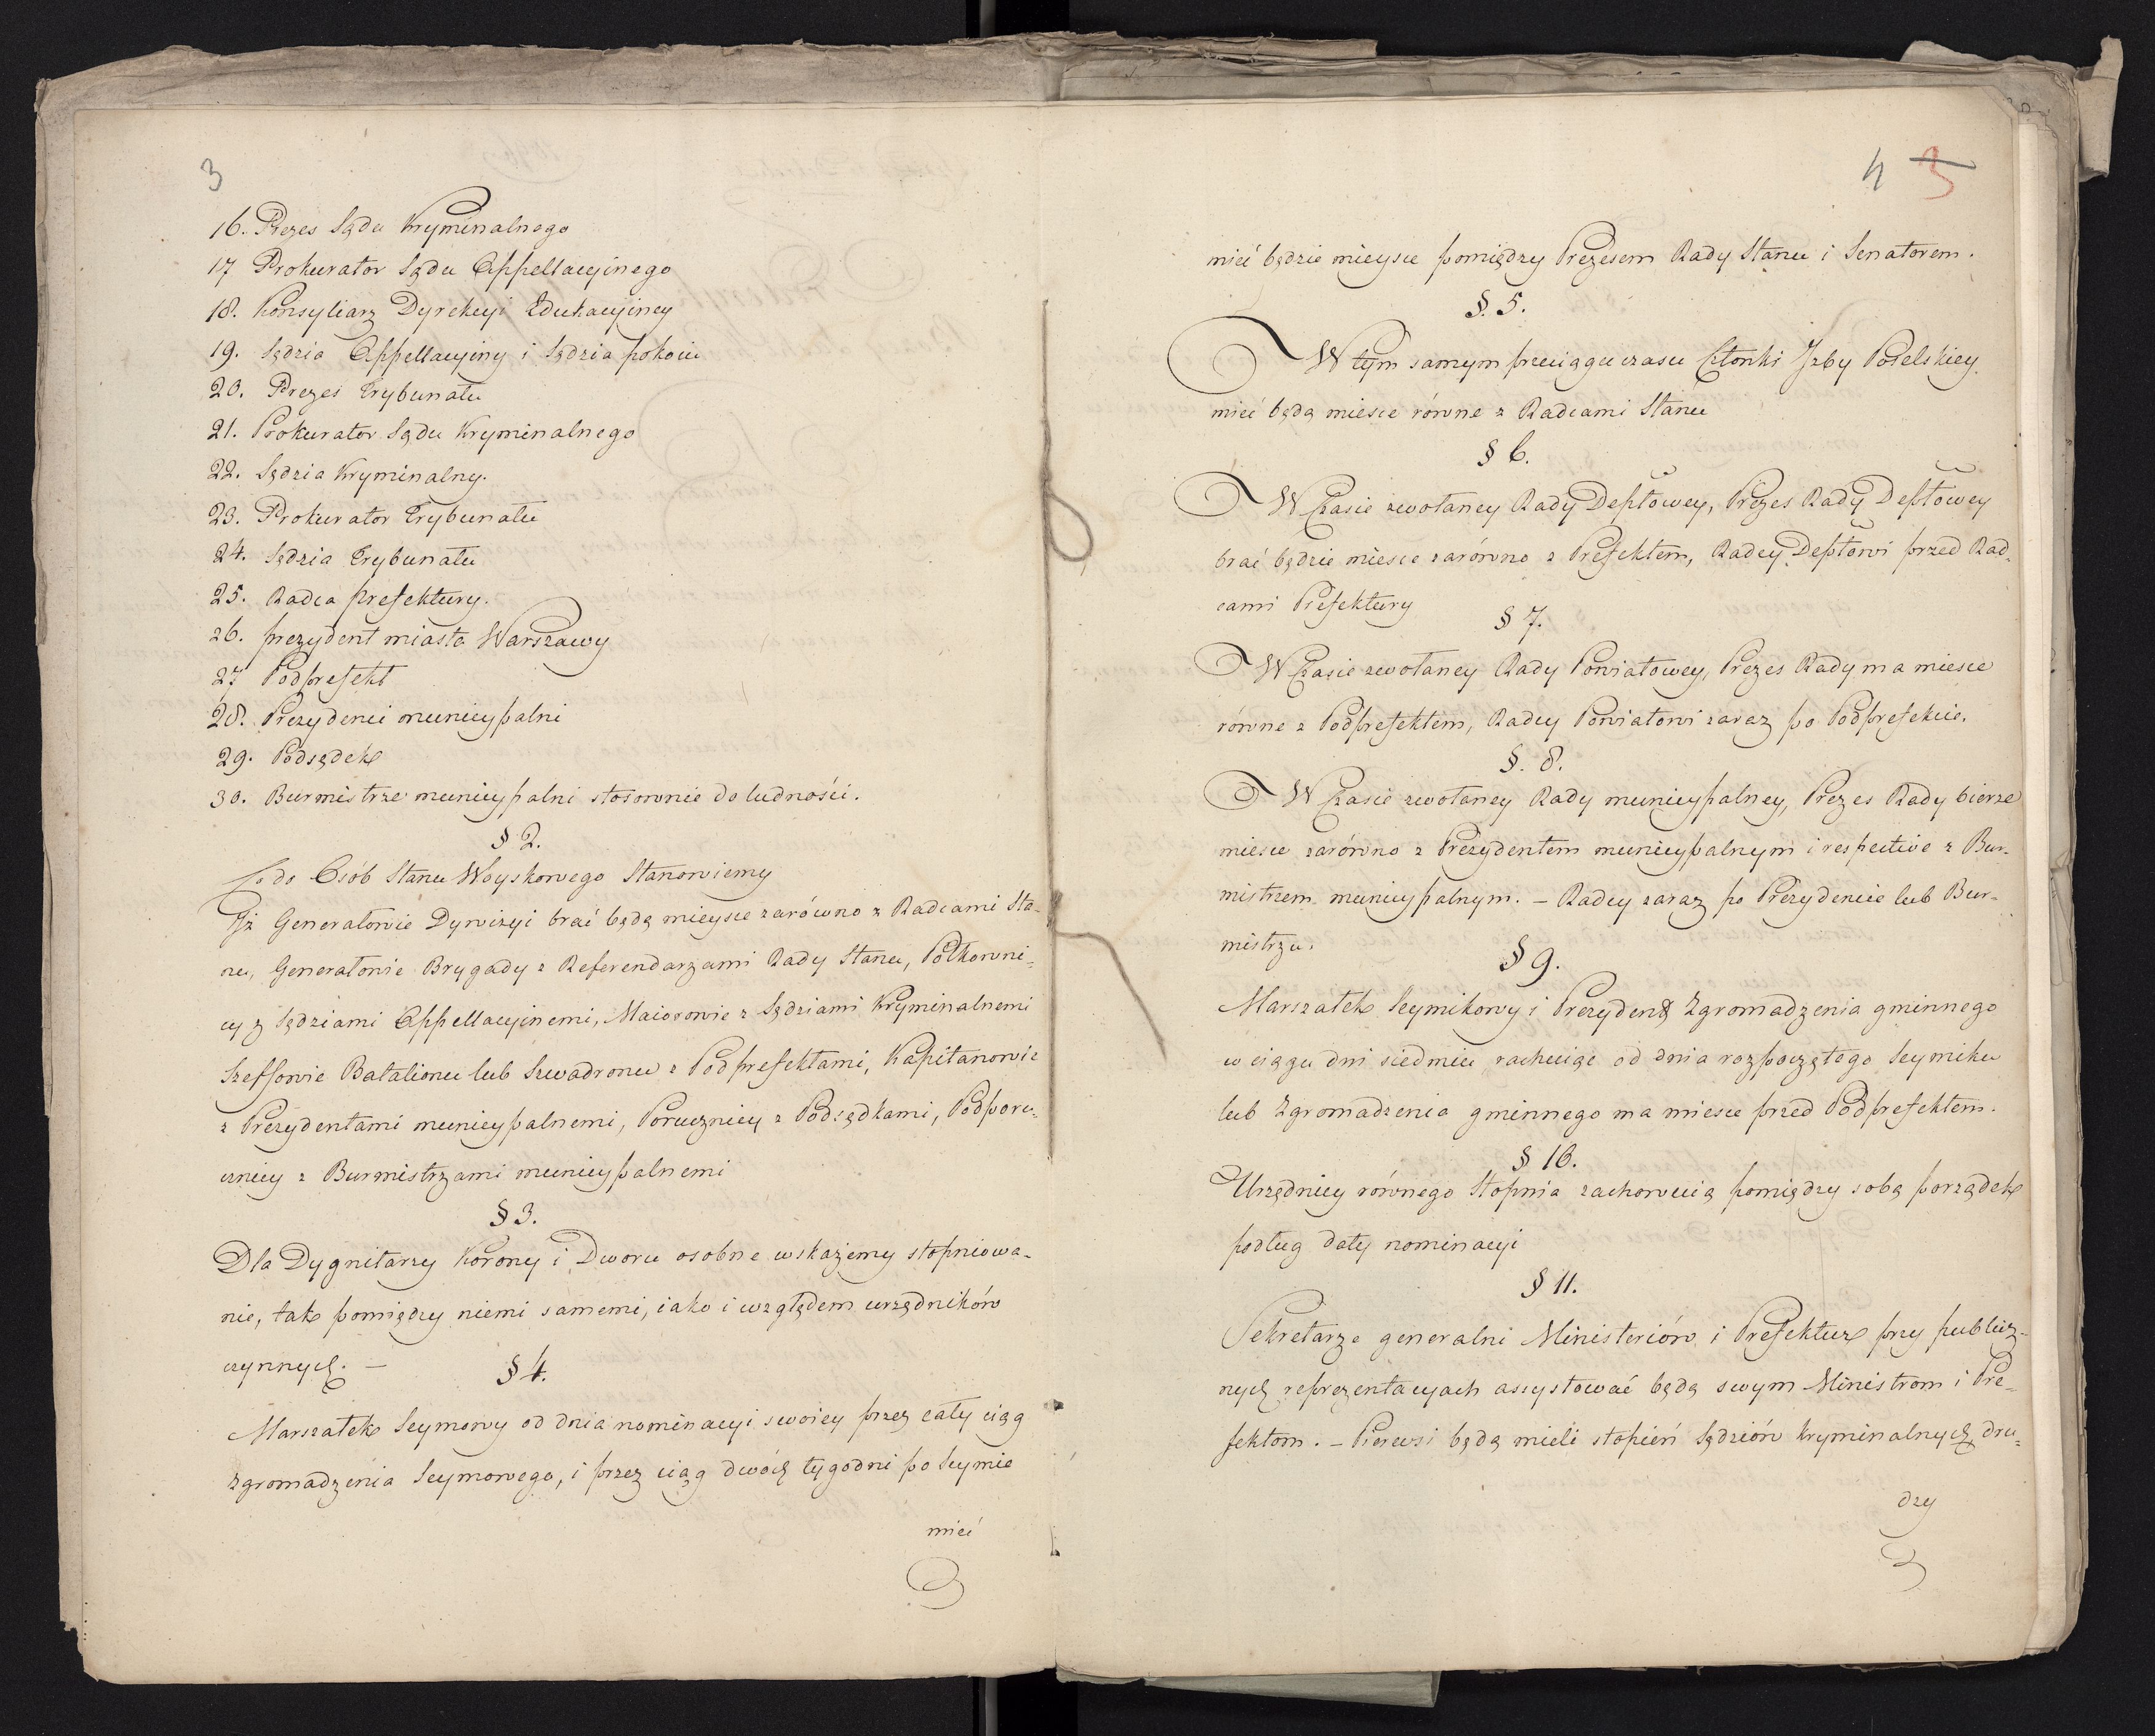 3
16. Prezes Sądu Kryminalnego
17 Prokurator Sądu Appellacyinego
18. Konsyliarz Dyrekcyi Edukacyiney
19. Sędzia Appellacyiny i Sędzia pokoiu
20. Prezes Trybunału
21. Prokurator Sądu Kryminalnego
22. Sędzia Kryminalny.
23. Prokurator Trybunału
24. Sędzia Trybunału
25. Radca prefektury.
26. prezydent miasta Warszawy
27 Podprefekt
28. Prezydenci municypalni
29. Podsędek
30. Burmistrze municypalni stosownie do ludności.
§ 2.
Co do Osób Stanu Woyskowego Stanowiemy
Iż Generałowie Dywizyi brać będą mieysce zarówno z Radcami Sta-
nu, Generałowie Brygady z Referendarzami Rady Stanu, Połkowni-
cy z Sędziami Appellacyinemi, Maiorowie z Sędziami Kryminalnemi
Szeffowie Batalionu lub Szwadronu z Podprefektami, Kapitanowie
z Prezydentami municypalnemi, Porucznicy z Podsędkami, Podporu-
cznicy z Burmistrzami municypalnemi
§ 3.
Dla Dygnitarzy Korony i Dworu osobne wskażemy stopniowa-
nie, tak pomiędzy niemi samemi, iako i względem urzędników
czynnych. —
§ 4.
Marszałek Seymowy od dnia nominacyi swoiey przez cały ciąg
zgromadzenia Seymowego, i przez ciąg dwóch tygodni po Seymie
mieć
4 3
mieć będzie mieysce pomiędzy Prezesem Rady Stanu i Senatorem.
§. 5.
W tym samym przeciągu czasu Członki Izby Poselskiey
mieć będą miesce równe z Radcami Stanu
§ 6.
W Czasie zwołaney Rady Deptowey, Prezes Rady Deptowey
brać będzie miesce zarówno z Prefektem, Radcy Deptowi przed Rad-
cami Prefektury
§ 7.
W Czasie zwołaney Rady Powiatowey, Prezes Rady ma miesce
równe z Podprefektem, Radcy Powiatowi zaraz po Podprefekcie.
§. 8.
W Czasie zwołaney Rady municypalney, Prezes Rady bierze
miesce zarówno z Prezydentem municypalnym i respective z Bur-
mistrzem municypalnym. — Radcy zaraz po Prezydencie lub Bur-
mistrzu.
§ 9.
Marszałek Seymikowy i Prezydent Zgromadzenia gminnego
w ciągu dni siedmiu rachuiąc od dnia rozpoczętego Seymiku
lub Zgromadzenia gminnego ma miesce przed Podprefektem.
§ 10.
Urzędnicy równego Stopnia zachowuią pomiędzy sobą porządek
podług daty nominacyi
§ 11.
Sekretarze generalni Ministeriów i Prefektur przy publicz-
nych reprezentacyach assystować będą swym Ministrom i Pre-
fektom. — Pierwsi będą mieli stopień Sędziów kryminalnych dru-
dzy